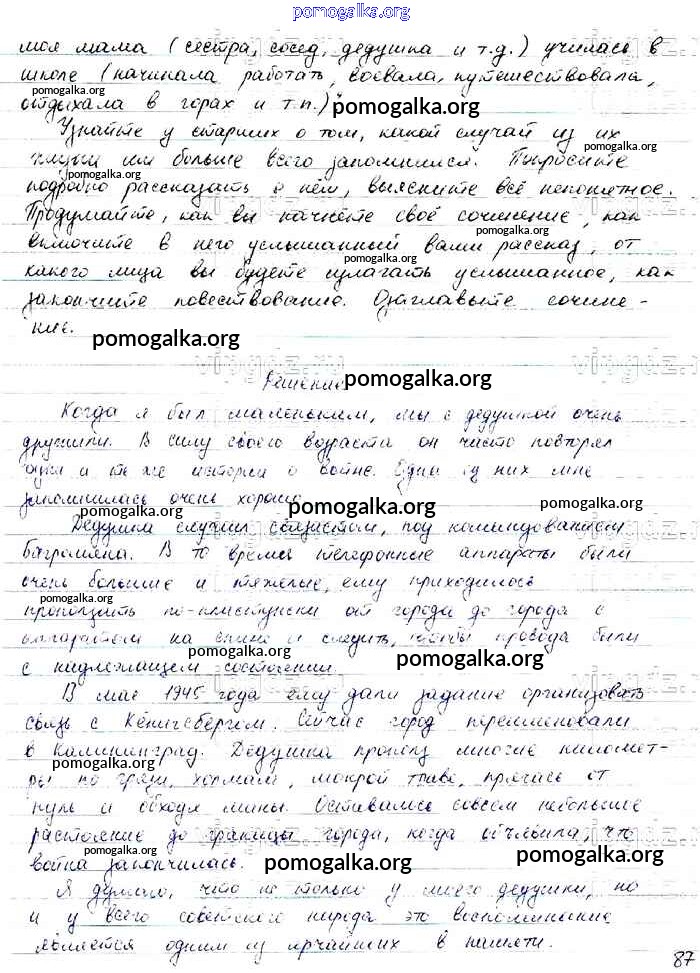 pomogalka.org
моя мама (сестра, сосед, дедушка и т.д.) училась в
школе (начинала работать, воевала, путешествовала,
отдыхала в горах и т.п.)
pomogalka.org
Узнайте у старших о том, какой случай из их
жизни им больше всего запомнился. Попросите
pomogalka.org
pomogalka.org
подробно рассказать о нём, выясните всё непонятное.
Продумайте, как вы начнёте своё сочинение, как
pomogalka.org
включите в него услышанный вами рассказ, от
какого лица вы будете излагать услышанное, как
закончите повествование. Озаглавьте сочине-
ние.
pomogalka.org
vipgdz.ru
Решение
pomogalka.org
Когда я был маленьким, мы с дедушкой очень
дружили. В силу своего возраста он часто повторял
одни и те же истории о войне. Одна из них мне
запомнилась очень хорошо.
pomogalka.org
pomogalka.org
Дедушка служил связистом, под командованием
Баграмяна. В то время телефонные аппараты были
очень большие и тяжелые, ему приходилось
pomogalka.org
проползать по-пластунски от города до города с
аппаратом на спине и следить, чтобы провода были
pomogalka.org
pomogalka.org
в надлежащем состоянии.
В мае 1945 года ему дали задание организовать
связь с Кёнигсбергом. Сейчас город переименовали
в Калининград. Дедушка прополз многие километ-
pomogalka.org
ры по грязи, холмам, мокрой траве, прячась от
пуль и обходя мины. Оставалось совсем небольшое
расстояние до границы города, когда объявили, что
pomogalka.org
война закончилась.
pomogalka.org
pomogalka.org
Я думаю, что не только у моего дедушки, но
и у всего советского народа это воспоминание
является одним из ярчайших в памяти.
87